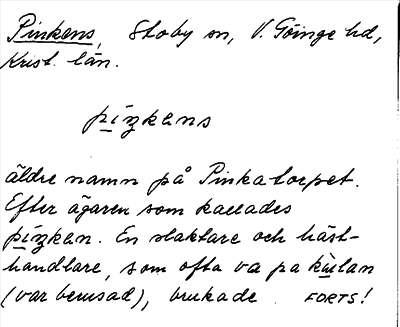 Pinkens, Stoby sn, V. Göinge hd,
Krist. län.
píŋkans
äldre namn på Pinkatorpet.
Efter ägaren som kallades
píŋkan. En slaktare och häst-
handlare, som ofta va pa kùlan
(var berusad), brukade FORTS!